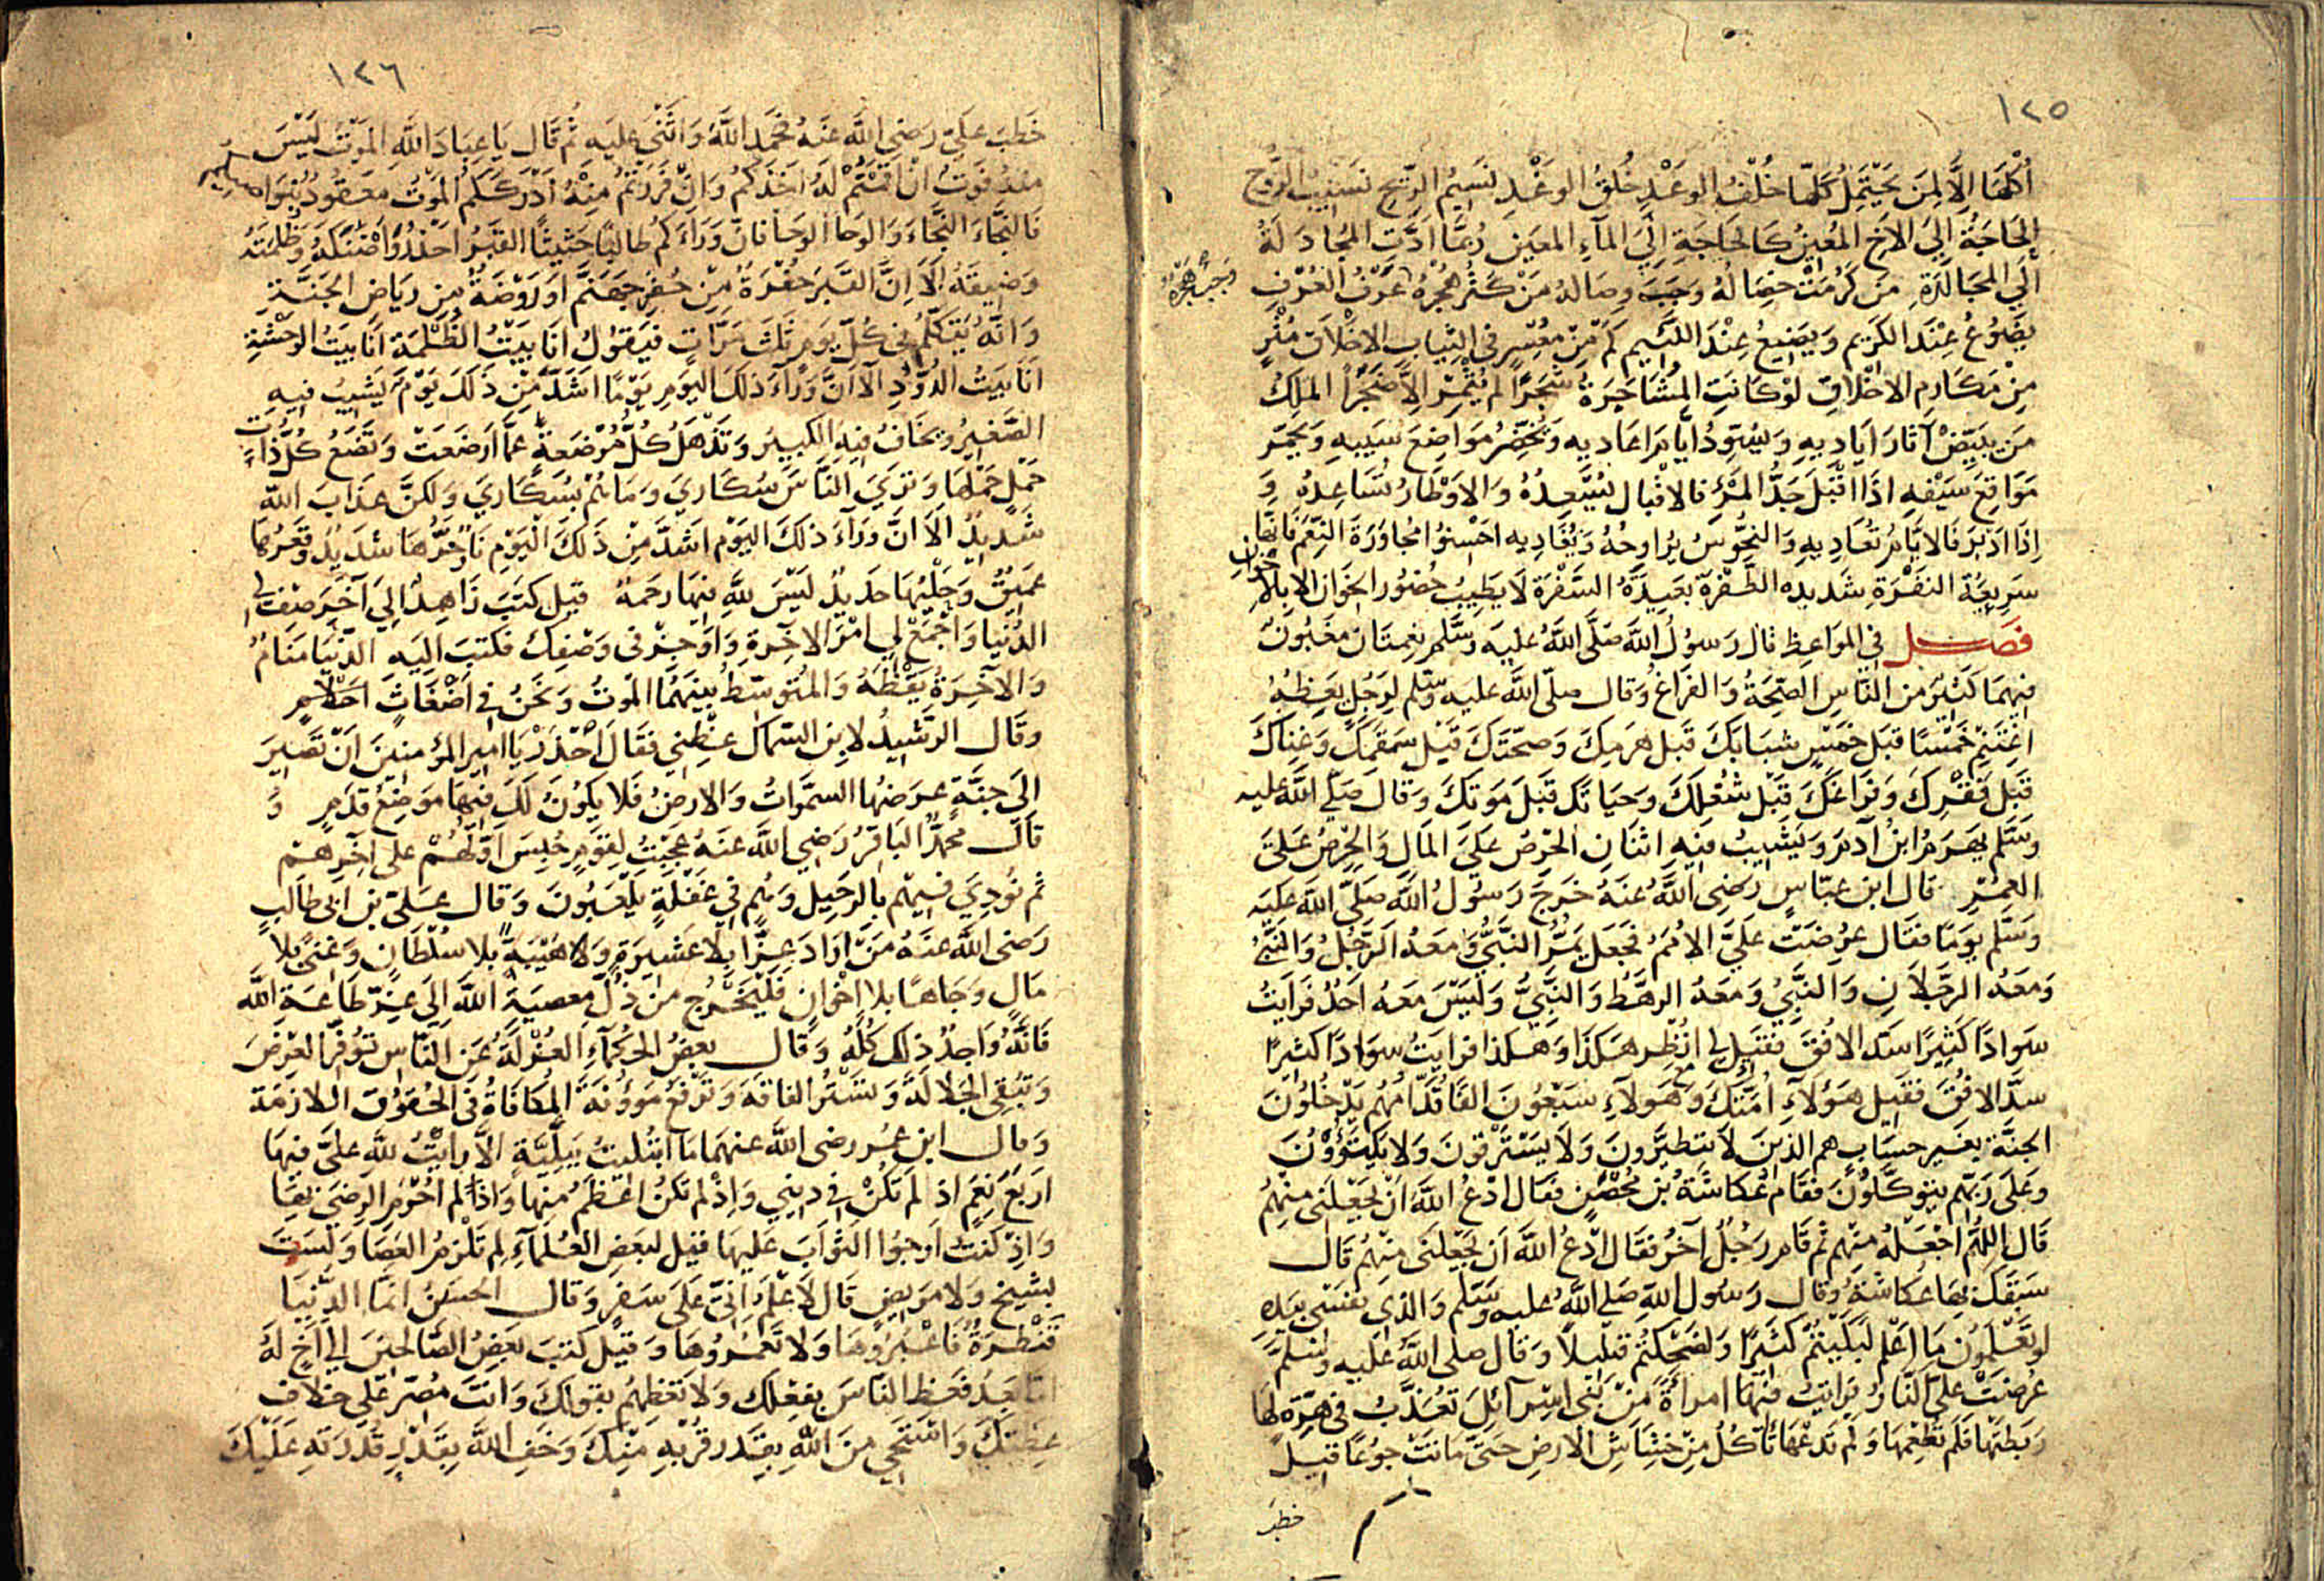 ١٢٥
أكْهَا إلَّا لِمَن يَحْتَمِلُ كَلَّهَا خُلْفُ الوَعْدِ خُلقُ الوَغْدِ نَسِيمُ الرِّيحِ نَسِيبُ الرُّوحِ
الحَاجَةُ إلَى الأخِ المُعِينِ كَالحَاجَةِ إلَى المآءِ المعِين رُبمَّا أدَّتِ المُجَادَلَةُ
إلَى المجَالَدَةِ مَن كَرُمَتْ خِصَالُهُ وَجَبَ وِصَالهُ مَنْ كَثُرَ هُجْرُهُ عَرْفُ العُرْفِ
وَجَبَ هَجْرُهُ
يَضُوعُ عِنْدَ الكَرِيم وَيَضِيعُ عِنْدَ اللئِيم كَم مِّن مُعْسِرٍ في الثِيَابِ الاخلاَقِ مُثْرٍ
مِنْ مَكَارِمِ الاخْلَاقِ لَوْ كَانَتِ المُشَاجَرَةُ شَجَرًا لم تُثْمِرْ إلاَّ ضَجَرًا الملِكُ
مَن يُبَيِّضْ آثَارَ اَيَادِيهِ وَيُسَوِّدُ ايَّامَ اعَادِيهِ وَيُخَضِّرُ مَوَاضِعَ سَيبِهِ وَيحَمِّر
مَوَاقِعَ سَيْفهِ اذَا اقْبَلَ جَدُّ المرْء فالاقْبَال يُسْعِدُهُ وَالاوْطَارُ تُسَاعِدُهُ وَ
إذَا ادْبَرَ فَالايَّامُ تُعَادِيهِ وَالنحُّوسُ يُرَاوِحُهُ وَيُغَادِيهِ احْسِنُوا مجَاوَرَةَ النِّعَم فَانهَّا
سَرِيعَةُ النفْرَةِ شَدِيده الطَّفْرة بَعِيدَةُ السَّفْرَة لَا يَطِيبُ حُضُور الخوَان الا بلاَ
خوانِ
فصل في المواعِظ قال رَسوُلُ اللَّهَ صَلَّى اللَّهُ عليَه وسَلَّم نِعْمتَان مغبُونٌ
فِيهِمَا كَثيرٌ من النَّاسِ الصِّحَةُ وَالفرَاغُ وَقال صلّى اللَّه عليَه وسلم لِرَجُلٍ يعَظِهُ
اغْتَنِمْ خَمْسًا قبَل خَمسٍ شبَابَكَ قبَل هرَمِكَ وَصحّتَكَ قبَل سَقمَكَ وَغِناكَ
قبَلَ فقْرِكَ وَفرَاغَكَ قبْلَ شُغلِكَ وَحيَاتَكَ قبَلَ مَوتكَ وَقالَ صَلى اللَّه عليه
وسَلَّم يَهْرَمُ ابنُ آدَمَ وَيَشِيبُ فيهِ اثنَانِ الحْرِصُ عَلَى المَالِ وَالحْرِصُ عَلَى
العمُرِ قال ابن عبّاسٍ رَضِيَ اللَّهُ عنَهُ خرَجَ رَسوُلُ اللَّهَ صَلَّى اللَّهَ عَليَه
وَسَلَّم يوَمًا فقَال عرُضتْ عَلَيَّ الأمَمُ فجَعَل يَمُرُّ النَّبيُّ وَمعَهُ الَرجُلُ وَالنَّبيُّ
وَمَعَهُ الرجُّلاَنِ وَالنبَّيُّ وَمعَهُ الرهْطُ وَالنَّبيُّ وَليَسَ مَعهُ اَحَدٌ فرَايتُ
سَوَادًا كثَيِرًا سَدّ الافُقَ فقَيل لي انْظُر هَكذَا وَهَكذا فرايتُ سوَادًا كثيرًا
سَدَّ الافُقَ فقَيِل هَؤُلآءِ اُمَّتكَ وَمع هَولآءِ سَبْعُونَ الفًا قُدَّامُهُمْ يَدْخُلُونَ
الجنَّة بغَيرِ حسَابٍ هم الذينَ لاَ يتَطيَرَّونَ وَلَا يَسْتَرقونَ وَلاَ يَكتَوُونَ
وَعَلَى رَبِّهم يتَوكَّلُونَ فقَامَ عُكاشَةُ بنُ مُحْصنٍ فقال ادْعُ اللَّهَ انْ يَجْعَلَني مِنهُم
قَال اللهُمَّ اجْعَلْهُ مِنهم ثم قَامَ رَجُلٌ آخَرُ فقَال ادْعُ اللَّهَ اَن يَجْعَلنَي منهُمْ قَال
سَبَقَكَ بهَا عُكاشَةُ وَقال رَسُول اللهِ صَلى اللَّهُ عليه وسَلم وَالذي نفسَي بيَدِهِ
لو تعْلمُونَ مَا اعْلم لبَكَيتُمْ كثَيرًا وَلضَحِكتُمْ قليلاً وَقَال صَلى اللَّهُ عَليهِ وسَلمَّ
عُرِضتْ عَلَيَّ النَّارُ فرَايتُ فيْهَا امرَاةً مِنْ بَني اسْرَآئِلَ تعُذَّبُ في هِرّةٍ لها
رَبطتْهَا فلَم تُطْعِمْهَا وَلم تدَعْهَا تَأكُلُ مِنْ خَشَاشِ الارضِ حتَى مَاتتْ جوُعًا قيل
خطبَ
١٢٦
خَطَبَ عليّ رَضِي اللَّه عنهُ فحَمِدَ اللَّهَ وَاثْنَى عليَه ثُم قَال يَا عِبَادَ اللَّهِ المَوْتُ ليَسَ
مِنهُ فَوتُ انْ اقمْتُمْ لَهُ اخَذكُم وَانْ فَرَرْتُمْ مِنهُ ادْرَكَكُم الموتُ معَقُودٌ بنوَاصيكم
فَالنجَّاءَ النَّجَاءَ وَالوَحَا الوحَا فانَّ وَرَاءَكم طالبًا حَثيثًا القبَرُ احْذَرُوا ضَنْكَهُ وَظلمَتَهُ
وَضِيقَهُ الاَ انَّ القَبَر حُفْرَةٌ مِنْ حُفَرِ جهَنَّم اَو رَوْضَةٌ مِن رِيَاضِ الجَنَّةِ
وَانَّهُ يَتكلَّمُ في كُلّ يَوم ثَلثَ مَرَّاتٍ فَيَقوُلُ انَا بَيتُ الظُلْمَة انَا بيَتُ الوَحْشةِ
انَا بَيتُ الدُّودِ الاَ انَّ وَرَآءَ ذلكَ اليوَم يوْمًا اشَدَّ مِن ذَلكَ يَوْمٌ يَشِيبُ فيهِ
الصَّغيُر وَيخَافُ فيهِ الكبِيرُ وَتَذْهَلُ كُلُّ مُرْضعَةٍ عمَّا ارضَعَتْ وَتَضَعُ كُلُّ ذاتِ
حَمْلٍ حَمْلهَا وَتَرَى النَّاسَ سُكَارَي وَمَا هُم بسُكَارَي وَلكنَّ عذَابَ اللهِ
شَدِيدٌ الاَ انَّ وَرآءَ ذلكَ اليَوْم اشَدَّ مِنْ ذَلكَ الْيَوْمِ نَارٌ حَرُّهَا شدَيدٌ وقَعْرُهَا
عمِيقٌ وَحِلْيُهَا حدَيدٌ لَيْسَ للهِ فيهَا رحَمَةٌ قيل كتبَ زَاهِدٌ اليَ آخَرَ صِف لي
الدُّنيَا وَاجْمَعْ لي امْرَ الآخِرةِ وَاوْجِزْ في وَصْفِكَ فكتبَ الِيَهِ الدُّنيَا مَنَامٌ
وَالآخِرَةُ يَقْظَةٌ وَالمُتَوسّطُ بيَنَهُمَا الموتُ وَنَحنُ في اضْغَاثِ احلاَمٍ
وَقَال الرَّشيدُ لابنِ السّماك عِظني فقَالَ احْذَرْ يَا امير المؤمنينَ انْ تَصِيرَ
إلى جنَّةٍ عرَضُهَا السمّوَاتُ وَالارضُ فلا يكوُنُ لَكَ فيهَا موَضِعُ قَدَمٍ وَ
قَال محُمّدٌ البَاقِرُ رَضِي اللَّه عَنهُ عجِبْتُ لِقَومٍ حُبِسَ اوَّلهُمْ على آخِرِهِمْ
ثم نوُدِيَ فيهِم بالرحِيل وَهُم في غفْلةٍ يَلْعَبوُنَ وَقال عَلىّ بن ابَى طَالبٍ
رَضى اللَّه عنَهُ مَنْ ارَادَ عِزًّا بلا عَشِيرَةٍ وَلا هَيْبَةً بلا سُلْطَانٍ وَغِنىً بلا
مَالٍ وَجَاهًا بلا اخْوانٍ فَليخَرُج مِن ذُلّ معصِيةِ اللَّه الَى عِزّ طَاعَةِ اللَّه
فَانَّهُ وَاجِدٌ ذلِكَ كُلَّهُ وَقال بعضُ الحُكمآءِ العُزْلَةُ عَن النَّاس توُفِّرُ العِرْضَ
وَتُبقي الجَلالَةَ وَتَسْتُر الفاقَةَ وَتَرْفعُ مَؤُونَةَ المُكَافَاةُ في الحُقوُق اللازمَة
وَقال ابن عُمر رضى الله عنهمَا مَا ابْتُليتُ ببَليَّةٍ الاَّ رايْتُ للهِ علىَّ فيهَا
ارَبَعَ نِعَمٍ اذ لَم تَكُنْ في ديني وَاذْ لم تَكُنُ اعْظَمَ مِنهَا وَاذْ لم احُرَمِ الرِضَي بهَا
وَاذْ كنْتُ ارجُوا الثوَابَ عَليهَا قيل لبعَضِ العُلمآءِ لِم تَلْزَمُ العَصَا وَلَسْتَ
بشَيخٍ وَلا مرَيضٍ قَال لاَعْلَمَ انيَّ عَلَى سَفَرٍ وَقال الحَسَنُ انمَّا الدُّنيَا
قَنْطَرَةٌ فَاعْبُرُوهَا وَلا تَعْمُرُوهَا وَقيل كتَبَ بعَضُ الصَّالحينَ الى اخٍ لَهُ
امّا بَعدُ فعَظِ النَّاسَ بفِعْلِكَ وَلا تَعَظْهُم بقولِكَ وَانتَ مُصِرّ عَلَى خلاَف
عِظتكَ وَاسْتَحِي مِنَ اللَّهِ بقَدر قُرْبهِ مِنكَ وَخَفِ اللَّهَ بقَدْرِ قُدْرَتهِ عَلَيْكَ